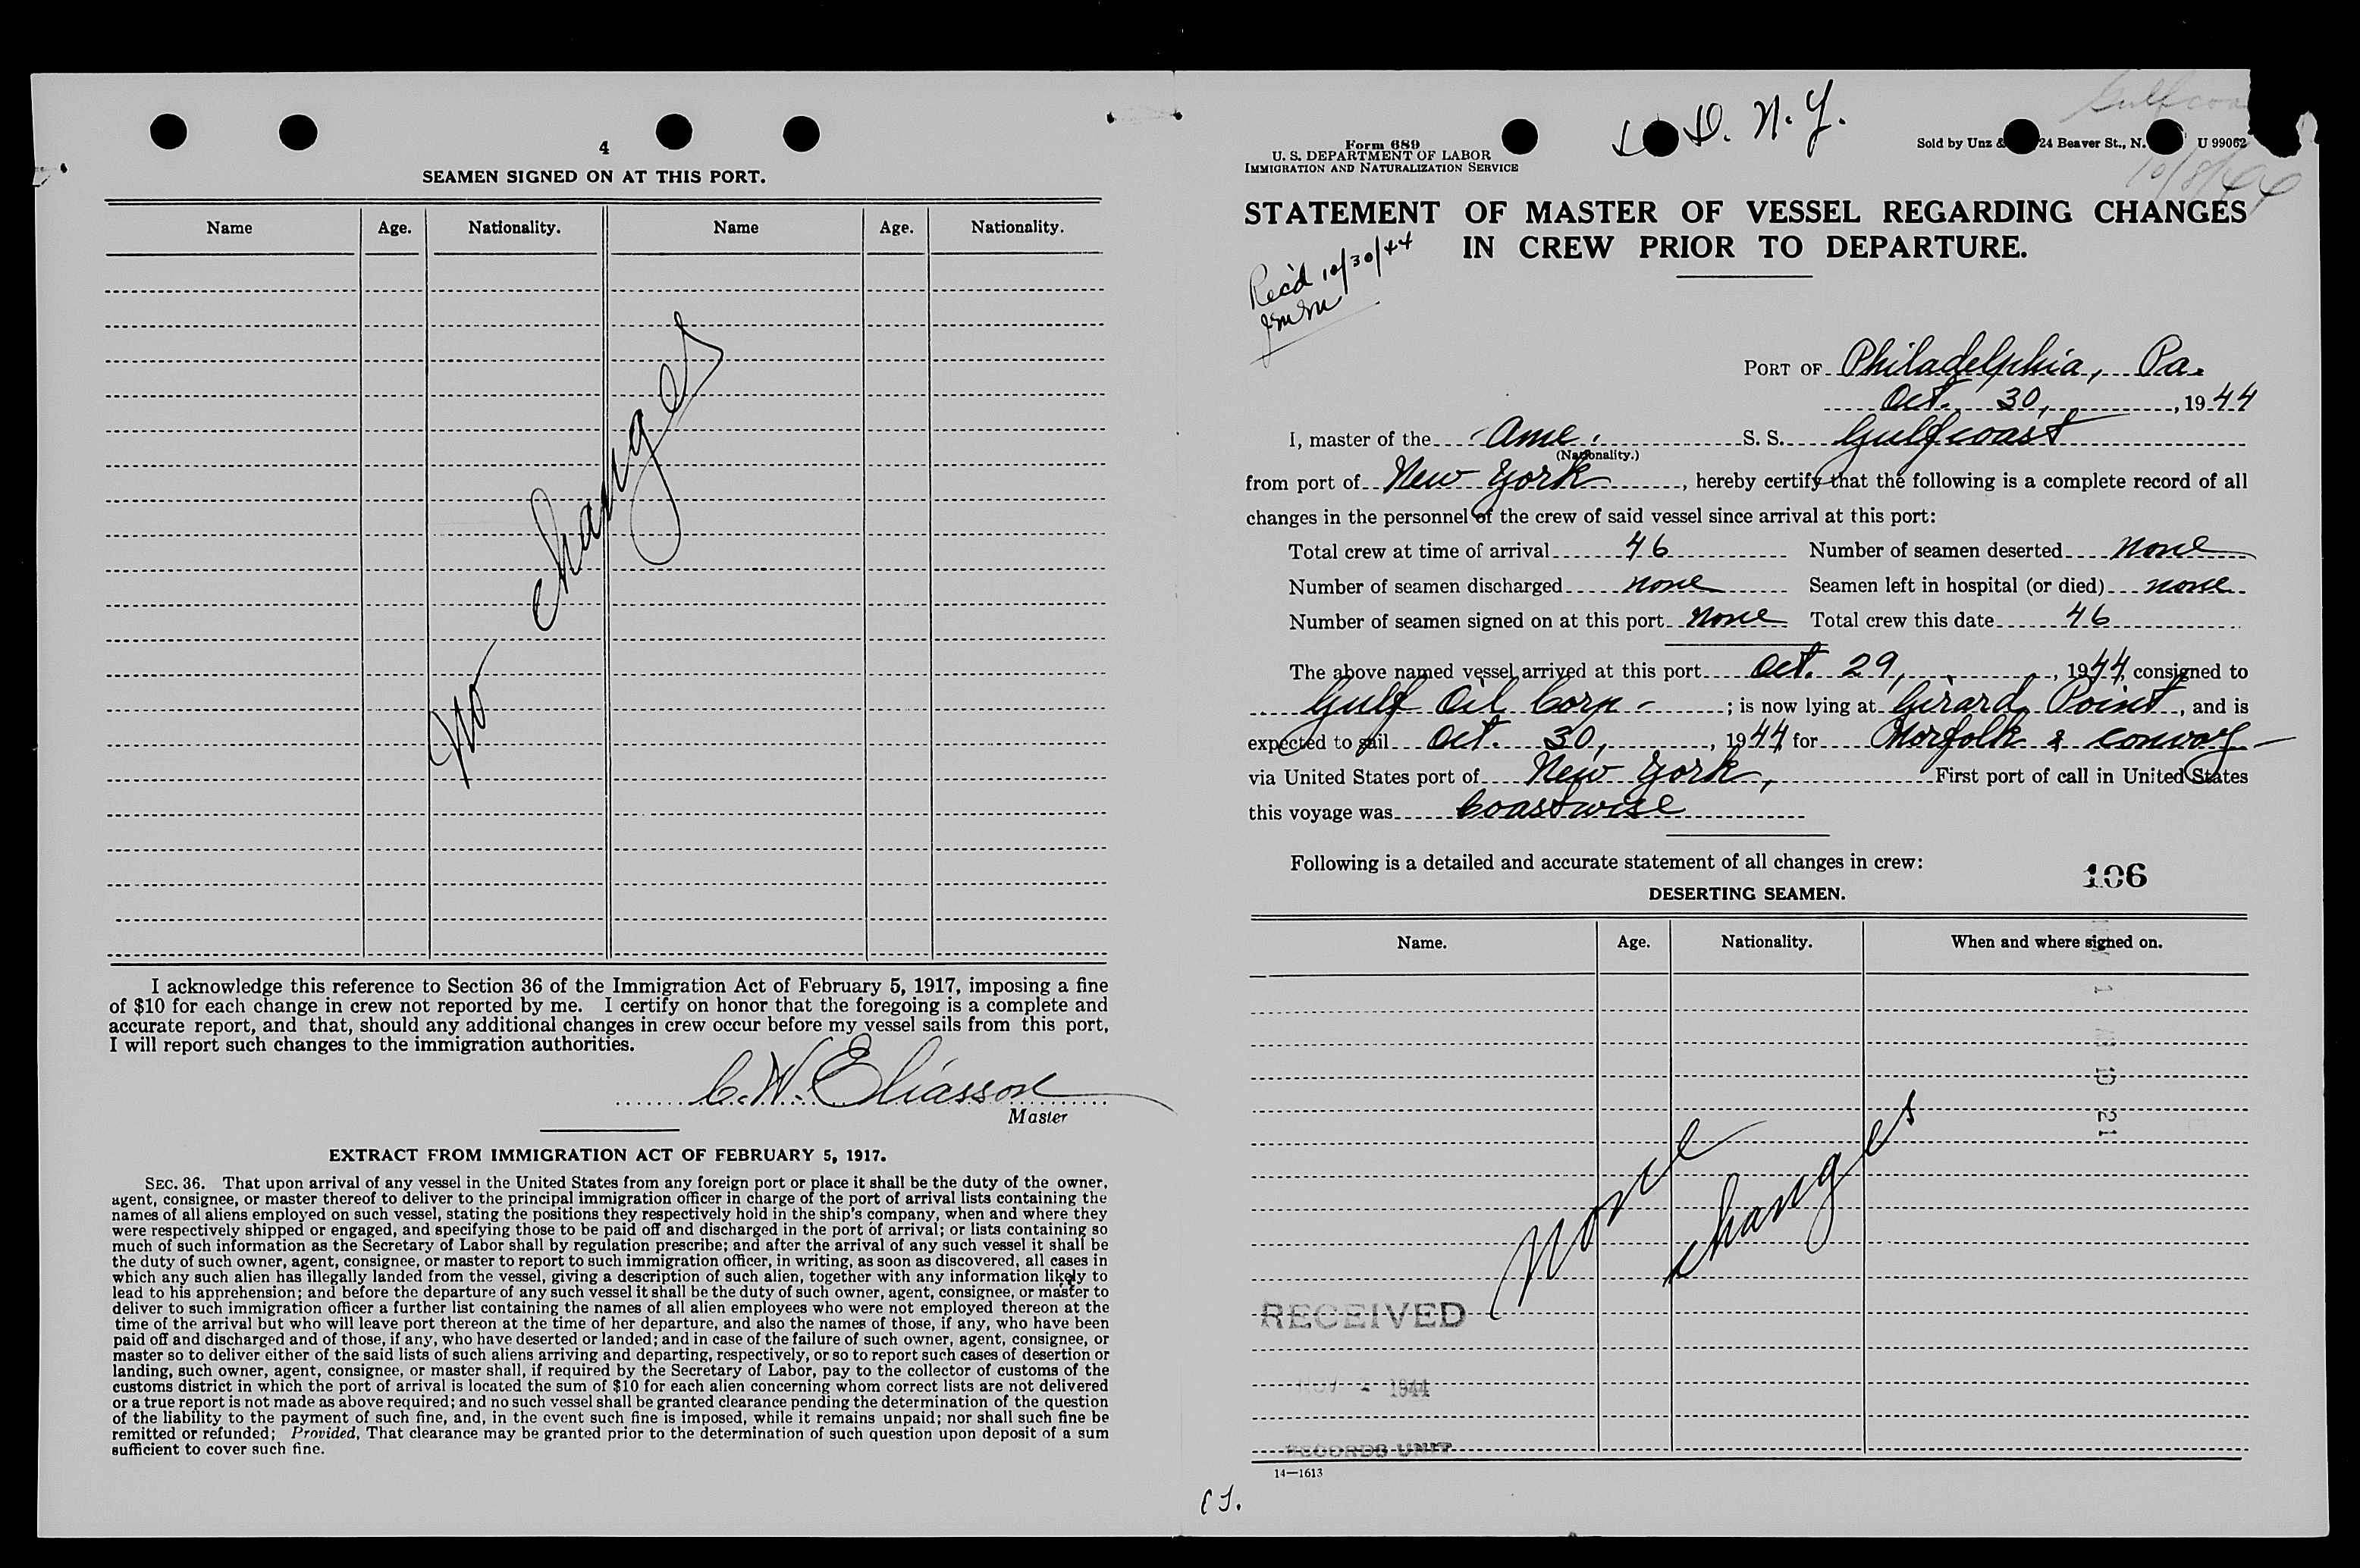 4
SEAMEN SIGNED ON AT THIS PORT.
Name Age. Nationality. Name Age. Nationality.
No changes
I acknowledge this reference to Section 36 of the Immigration Act of February 5, 1917, imposing a fine
of $10 for each change in crew not reported by me. I certify on honor that the foregoing is a complete and
accurate report, and that, should any additional changes in crew occur before my vessel sails from this port,
I will report such changes to the immigration authorities.
C. W. Eliasson
Master
EXTRACT FROM IMMIGRATION ACT OF FEBRUARY 5, 1917.
SEC. 36. That upon arrival of any vessel in the United States from any foreign port or place it shall be the duty of the owner,
agent, consignee, or master thereof to deliver to the principal immigration officer in charge of the port of arrival lists containing the
names of all aliens employed on such vessel, stating the positions they respectively hold in the ship's company, when and where they
were respectively shipped or engaged, and specifying those to be paid off and discharged in the port of arrival; or lists containing so
much of such information as the Secretary of Labor shall by regulation prescribe; and after the arrival of any such vessel it shall be
the duty of such owner, agent, consignee, or master to report to such immigration officer, in writing, as soon as discovered, all cases in
which any such alien has illegally landed from the vessel, giving a description of such alien, together with any information likely to
lead to his apprehension; and before the departure of any such vessel it shall be the duty of such owner, agent, consignee, or master to
deliver to such immigration officer a further list containing the names of all alien employees who were not employed thereon at the
time of the arrival but who will leave port thereon at the time of her departure, and also the names of those, if any, who have been
paid off and discharged and of those, if any, who have deserted or landed; and in case of the failure of such owner, agent, consignee, or
master so to deliver either of the said lists of such aliens arriving and departing, respectively, or so to report such cases of desertion or
landing, such owner, agent, consignee, or master shall, if required by the Secretary of Labor, pay to the collector of customs of the
customs district in which the port of arrival is located the sum of $10 for each alien concerning whom correct lists are not delivered
or a true report is not made as above required; and no such vessel shall be granted clearance pending the determination of the question
of the liability to the payment of such fine, and, in the event such fine is imposed, while it remains unpaid; nor shall such fine be
remitted or refunded; Provided, That clearance may be granted prior to the determination of such question upon deposit of a sum
sufficient to cover such fine.
Gulfcoa
D. N. Y.
Form 689
U. S. DEPARTMENT OF LABOR
IMMIGRATION AND NATURALIZATION SERVICE
Sold by Unz & 24 Beaver St., N. U 99062
STATEMENT OF MASTER OF VESSEL REGARDING CHANGES
IN CREW PRIOR TO DEPARTURE.
Rec'd 10/30/44
PORT OF Philadelphia, Pa.
Oct. 30, , 1944
I, master of the Ame. S. S. Gulfcoast
(Nationality.)
from port of New York , hereby certify that the following is a complete record of all
changes in the personnel of the crew of said vessel since arrival at this port:
Total crew at time of arrival 46 Number of seamen deserted none
Number of seamen discharged none Seamen left in hospital (or died) none
Number of seamen signed on at this port none Total crew this date 46
The above named vessel arrived at this port Oct. 29, , 1944, consigned to
Gulf Oil Corp - ; is now lying at Girard Point , and is
expected to sail Oct. 30, , 1944 for Norfolk & convoy
via United States port of New York, First port of call in United States
this voyage was Coastwise
Following is a detailed and accurate statement of all changes in crew:
106
DESERTING SEAMEN.
Name. Age. Nationality. When and where signed on.
None changes
RECEIVED
NOV 1944
RECORDS UNIT
14—1613